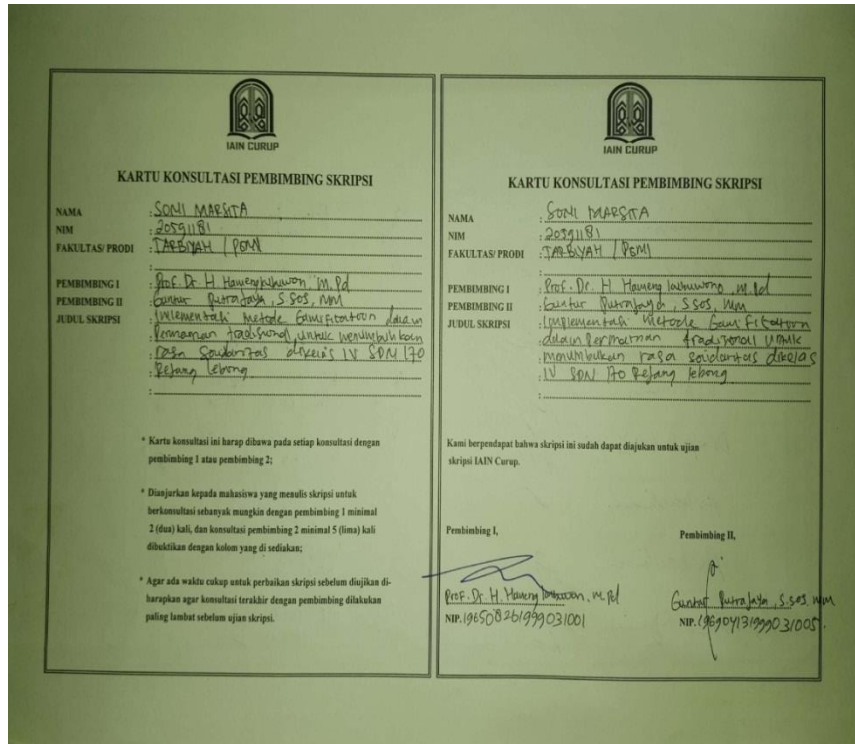 IAIN CURUP
KARTU KONSULTASI PEMBIMBING SKRIPSI
NAMA : SONI MARSITA
NIM : 20591181
FAKULTAS/ PRODI : TARBIYAH / PGMI
:
PEMBIMBING I : Prof. Dr. H. , M.Pd
PEMBIMBING II : Guntur Putrajaya, S.Sos, MM
JUDUL SKRIPSI : Implementasi Metode Gamification dalam
: Permainan tradisional untuk menumbuhkan
: rasa solidaritas dikelas IV SDN 170
: Rejang lebong
:
* Kartu konsultasi ini harap dibawa pada setiap konsultasi dengan
pembimbing 1 atau pembimbing 2;
* Dianjurkan kepada mahasiswa yang menulis skripsi untuk
berkonsultasi sebanyak mungkin dengan pembimbing 1 minimal
2 (dua) kali, dan konsultasi pembimbing 2 minimal 5 (lima) kali
dibuktikan dengan kolom yang di sediakan;
* Agar ada waktu cukup untuk perbaikan skripsi sebelum diujikan di-
harapkan agar konsultasi terakhir dengan pembimbing dilakukan
paling lambat sebelum ujian skripsi.
IAIN CURUP
KARTU KONSULTASI PEMBIMBING SKRIPSI
NAMA : SONI MARSITA
NIM : 20591181
FAKULTAS/ PRODI : TARBIYAH / PGMI
:
PEMBIMBING I : Prof. Dr. H. , M.Pd
PEMBIMBING II : Guntur Putrajaya, S.Sos, MM
JUDUL SKRIPSI : Implementasi Metode Gamification
: dalam Permainan tradisional untuk
: menumbukan rasa solidaritas dikelas
: IV SDN 170 Rejang lebong
:
Kami berpendapat bahwa skripsi ini sudah dapat diajukan untuk ujian
skripsi IAIN Curup.
Pembimbing I, Pembimbing II,
Prof. Dr. H. , M.Pd Guntur Putrajaya, S.Sos, MM
NIP. 196508261999031001 NIP. 196904131999031005.